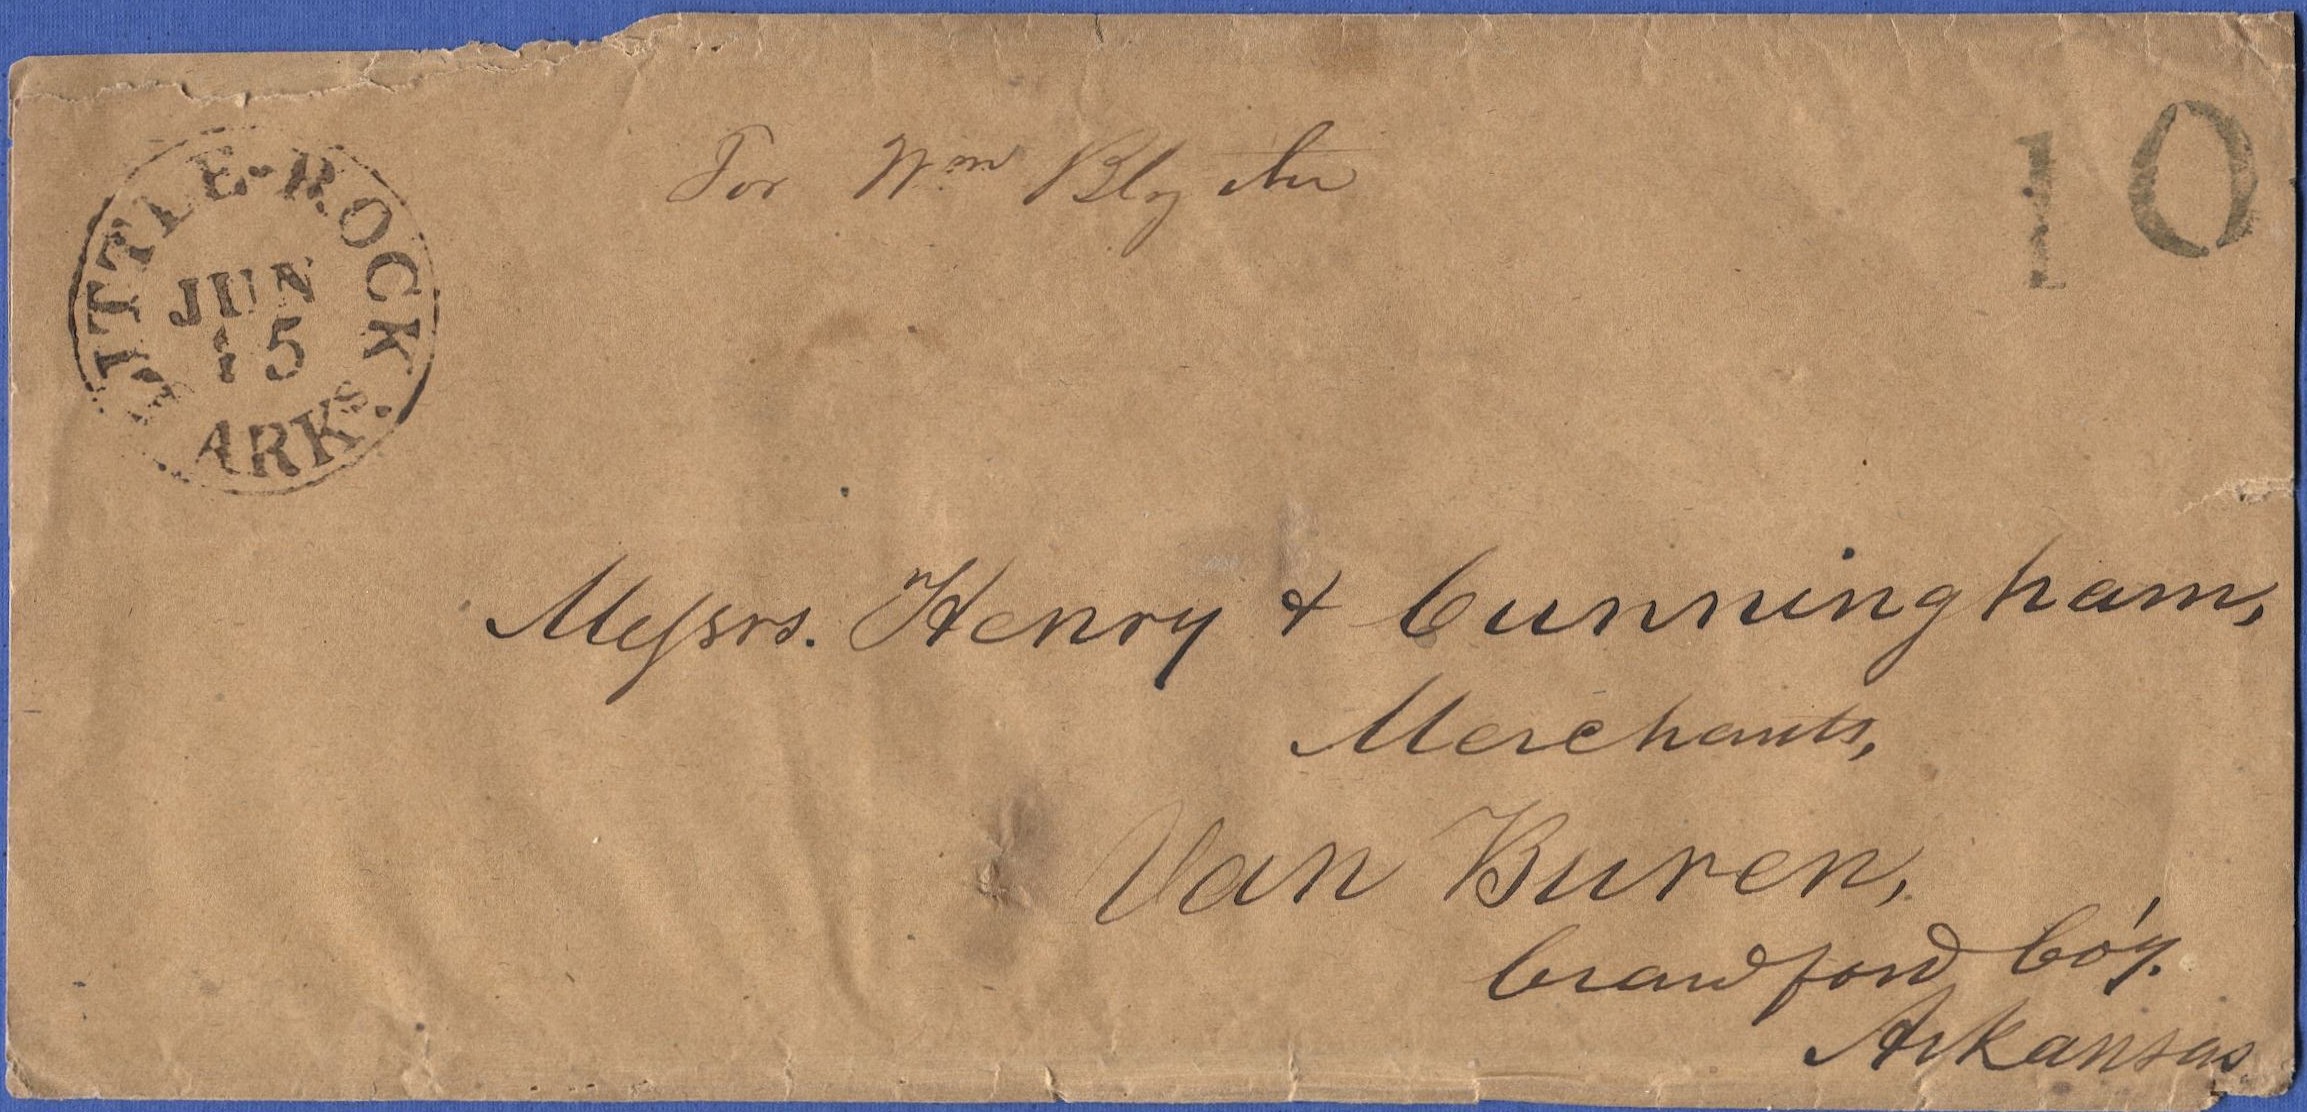 LITTLE-ROCK
JUN
15
ARKS.
10
For Wm Blythe
Messrs. Henry & Cunningham,
Merchants,
Van Buren,
Crawford Co'y.
Arkansas